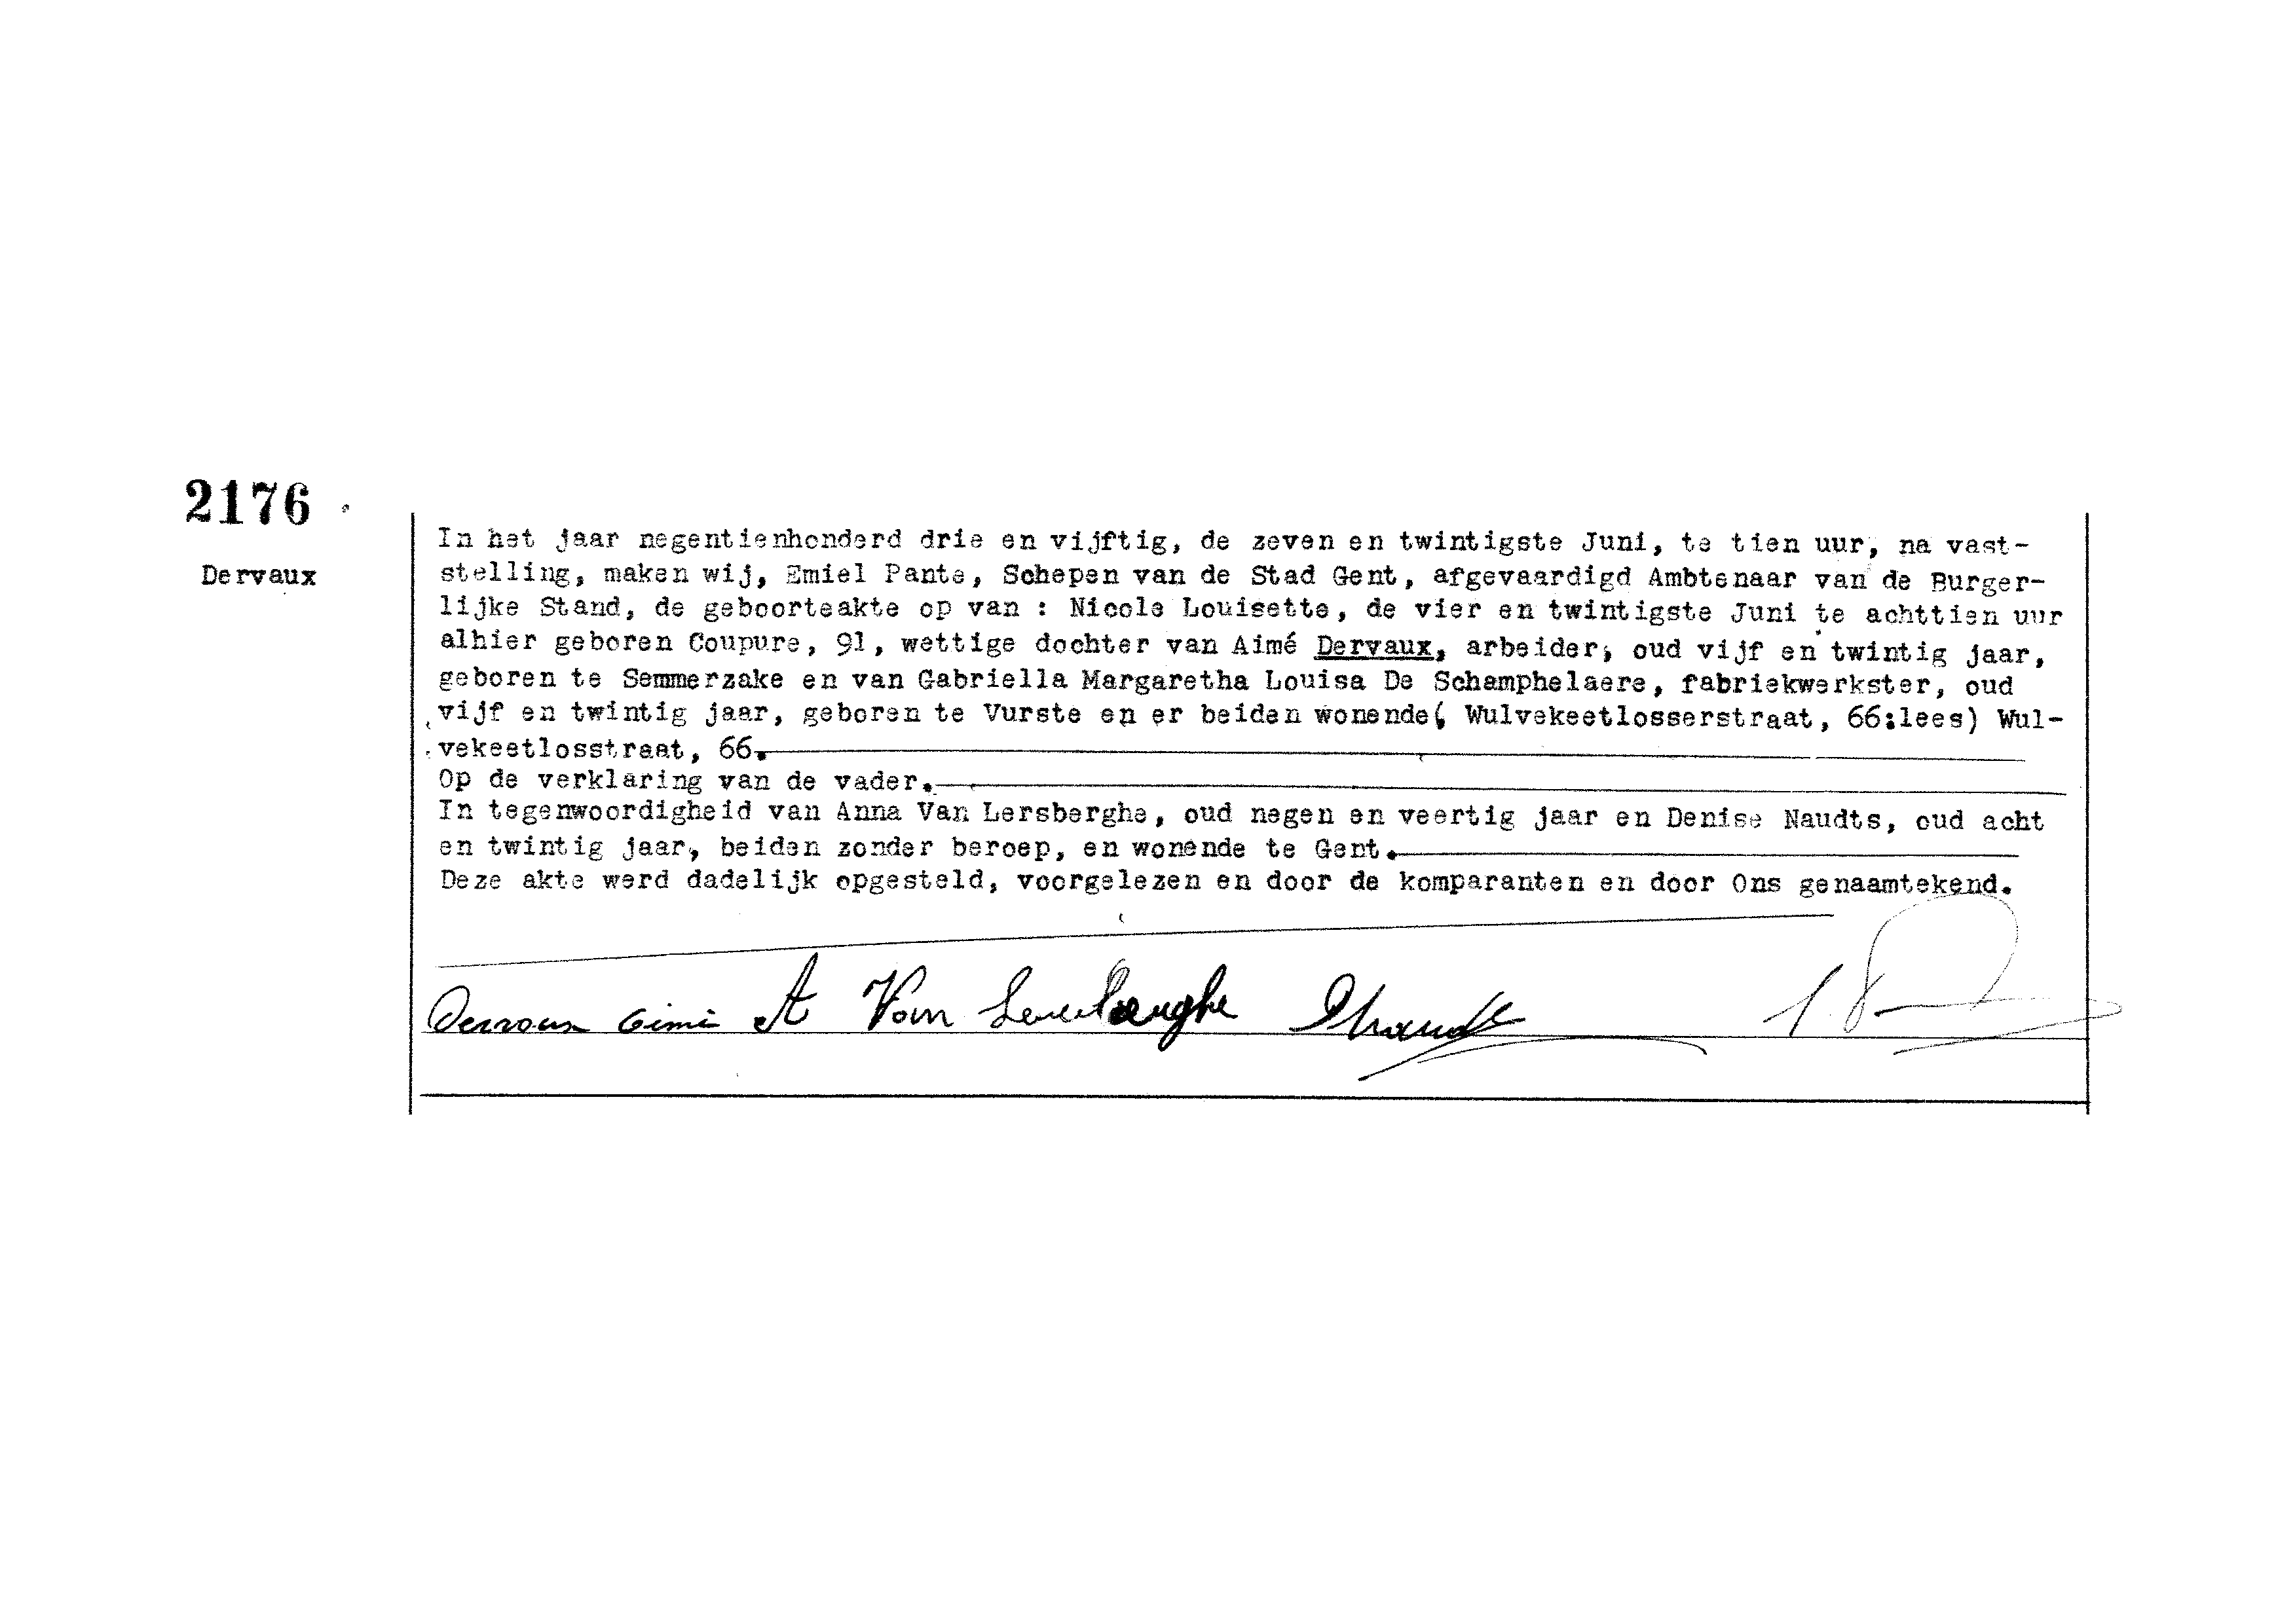 2176
Dervaux
In het jaar negentienhonderd drie en vijftig, de zeven en twintigste Juni, te tien uur, na vast-
stelling, maken wij, Emiel Pante, Schepen van de Stad Gent, afgevaardigd Ambtenaar van de Burger-
lijke Stand, de geboorteakte op van : Nicole Louisette, de vier en twintigste Juni te achttien uur
alhier geboren Coupure, 91, wettige dochter van Aimé Dervaux, arbeider, oud vijf en twintig jaar,
geboren te Semmerzake en van Gabriella Margaretha Louisa De Schamphelaere, fabriekwerkster, oud
vijf en twintig jaar, geboren te Vurste en er beiden wonende( Wulvekeetlosserstraat, 66:lees) Wul-
vekeetlosstraat, 66.
Op de verklaring van de vader.
In tegenwoordigheid van Anna Van Lersberghe, oud negen en veertig jaar en Denise Naudts, oud acht
en twintig jaar, beiden zonder beroep, en wonende te Gent.
Deze akte werd dadelijk opgesteld, voorgelezen en door de komparanten en door Ons genaamtekend.
Dervaux Aimé A Van Lersberghe